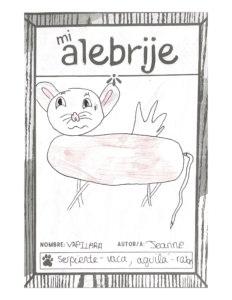 mi
alebrije
NOMBRE: VAPILARA AUTOR/A: Jeanne
serpiente - vaca, aguila - raton